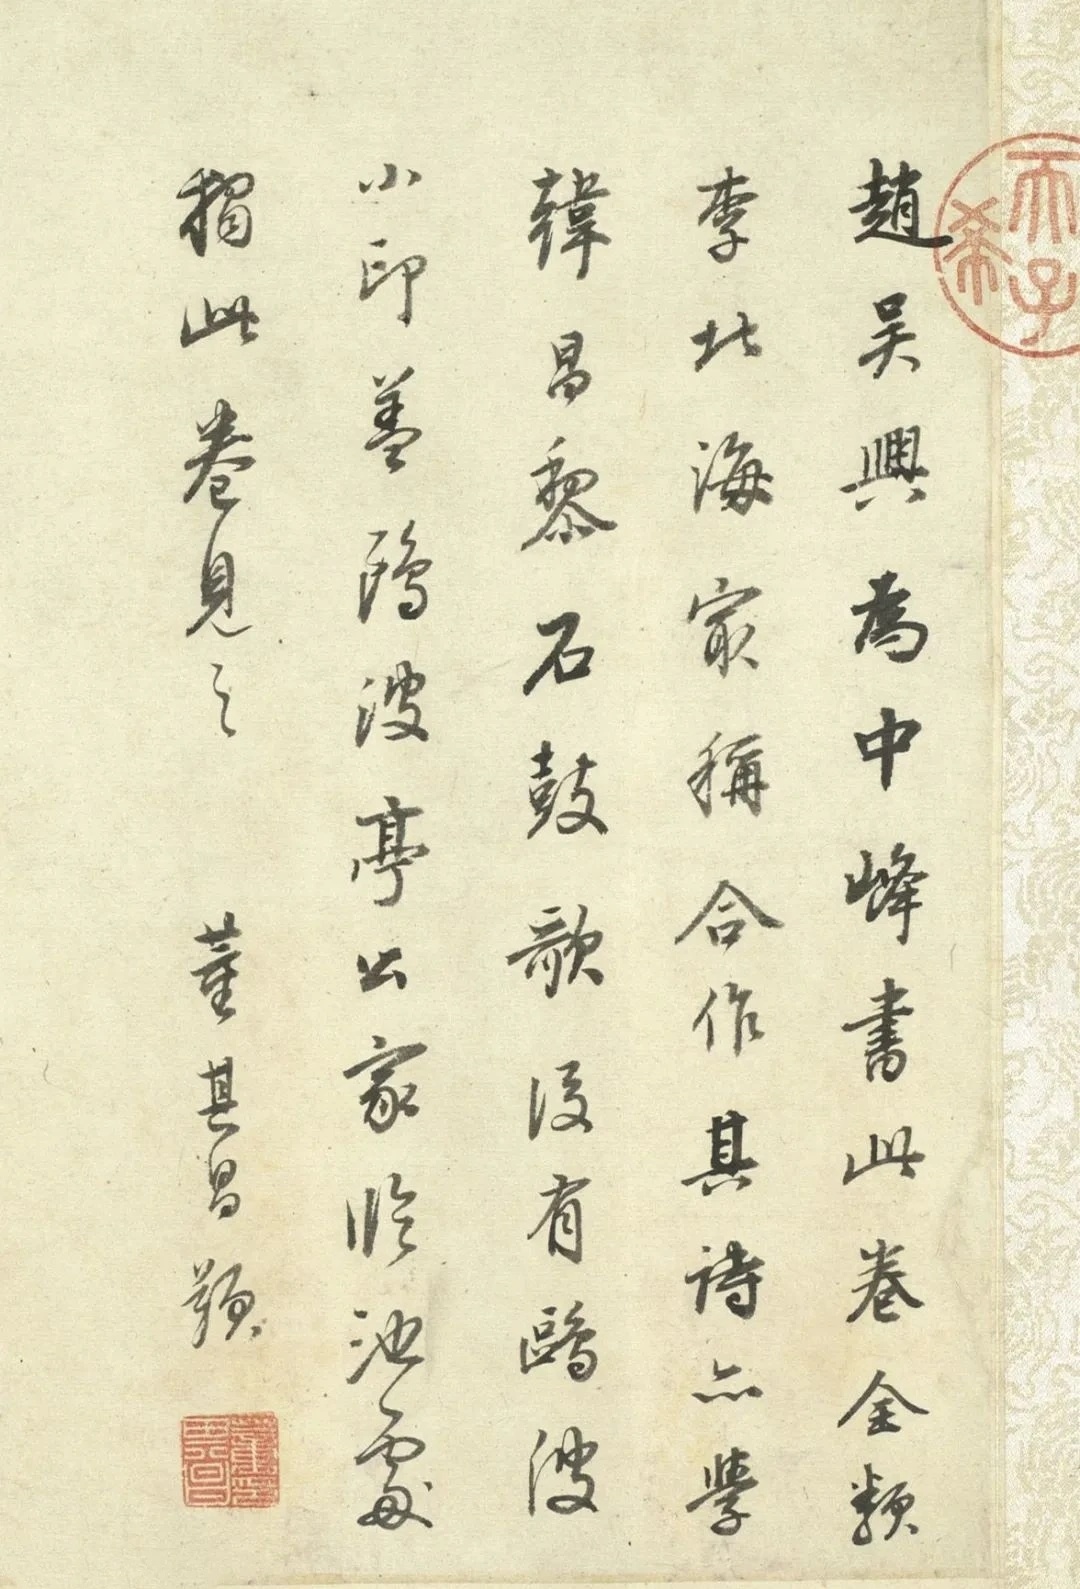 趙吳興為中峰書此卷全類
李北海最稱合作其詩亦學
韓昌黎石鼓歌後有鷗波
小印蓋鷗波亭公家臨池處
獨此卷見之 董其昌題
天子
希
董其昌印